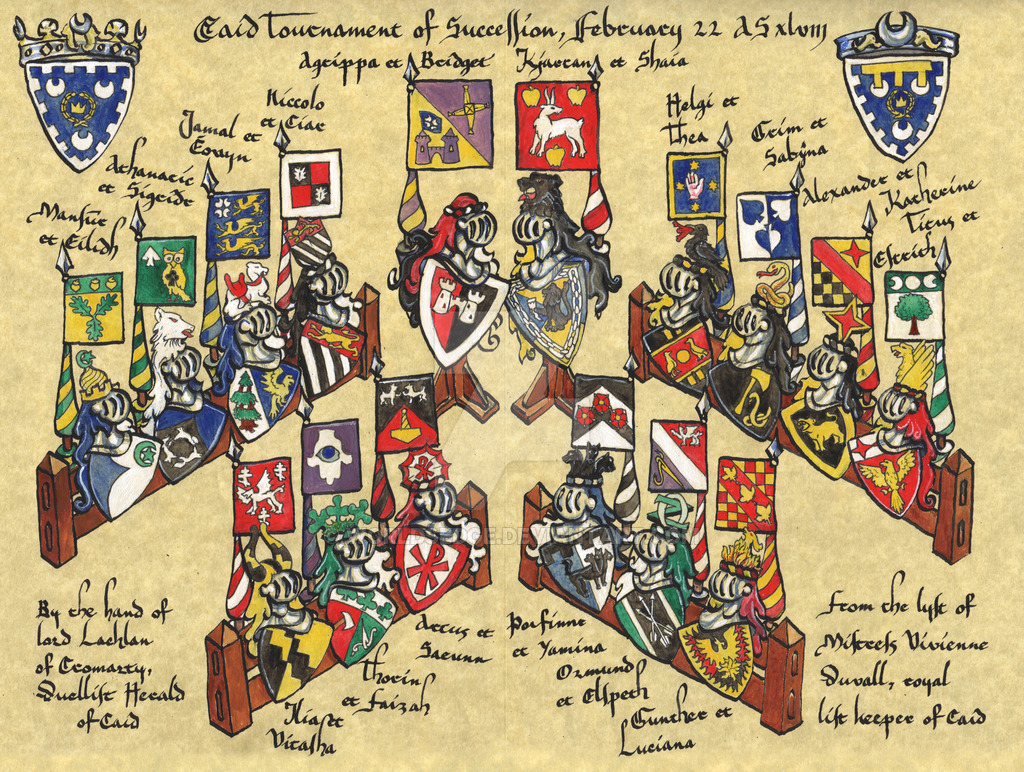 Caid Tournament of Succession, February 22 AS xlviii
Agrippa et Bridget
Kjartan et Shaia
Niccolo
et Ciar
Helgi et
Thea
Jamal et
Eowyn
Grim et
Sabÿna
Athanaric
et Sigride
Alexander et
Katherine
Mansur
et Eilidh
Titus et
Esrich
By the hand of
lord Lachlan
of Cromarty,
Duellist Herald
of Caid
Arcus et
Saeunn
Thorin
et Faizah
et
Vitasha
Þorfinnr
et Yamina
Ormund
et Elspeth
Gunther et
Luciana
From the lyst of
Mistress Vivienne
Duvall, royal
list keeper of Caid